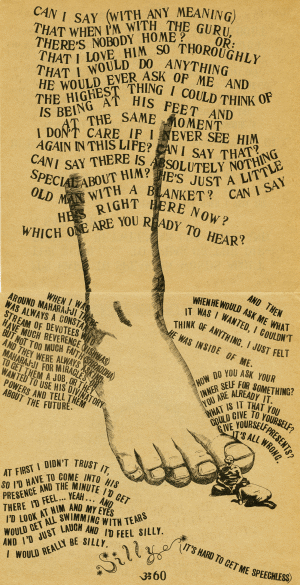 CAN I SAY (WITH ANY MEANING)
THAT WHEN I'M WITH THE GURU,
THERE'S NOBODY HOME? OR:
THAT I LOVE HIM SO THOROUGHLY
THAT I WOULD DO ANYTHING
HE WOULD EVER ASK OF ME AND
THE HIGHEST THING I COULD THINK OF
IS BEING AT HIS FEET AND
AT THE SAME MOMENT
I DON'T CARE IF I NEVER SEE HIM
AGAIN IN THIS LIFE? CAN I SAY THAT?
CAN I SAY THERE IS ABSOLUTELY NOTHING
SPECIAL ABOUT HIM? HE'S JUST A LITTLE
OLD MAN WITH A BLANKET? CAN I SAY
HE'S RIGHT HERE NOW?
WHICH ONE ARE YOU READY TO HEAR?
WHEN I WAS
AROUND MAHARAJJI THERE
WAS ALWAYS A CONSTANT
STREAM OF DEVOTEES WHO
HAVE MUCH REVERENCE
BUT NOT TOO MUCH FAITH
AND THEY WERE ALWAYS ASKING
MAHARAJJI FOR MIRACLES,
TO GET THEM A JOB, OR THEY
WANTED TO USE HIS
POWERS AND TELL THEM
ABOUT THE FUTURE.
AND THEN
WHEN HE WOULD ASK ME WHAT
IT WAS I WANTED, I COULDN'T
THINK OF ANYTHING. I JUST FELT
HE WAS INSIDE OF ME.
HOW DO YOU ASK YOUR
INNER SELF FOR SOMETHING?
YOU ARE ALREADY IT.
WHAT IS IT THAT YOU
COULD GIVE TO YOURSELF?
GIVE YOURSELF PRESENTS?
IT'S ALL WRONG.
AT FIRST I DIDN'T TRUST IT,
SO I'D HAVE TO COME INTO HIS
PRESENCE AND THE MINUTE I'D GET
THERE I'D FEEL... YEAH... AND
I'D LOOK AT HIM AND MY EYES
WOULD GET ALL SWIMMING WITH TEARS
AND I'D JUST LAUGH AND I'D FEEL SILLY.
I WOULD REALLY BE SILLY.
Silly
(IT'S HARD TO GET ME SPEECHLESS)
60